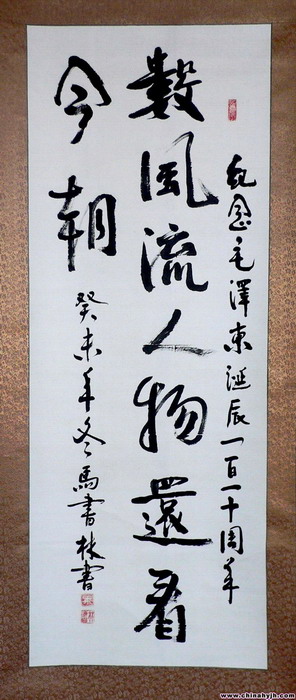 紀念毛澤東誕辰一百一十周年
數風流人物還看
今朝
癸未年冬馬書林書
www.chinahyjh.com